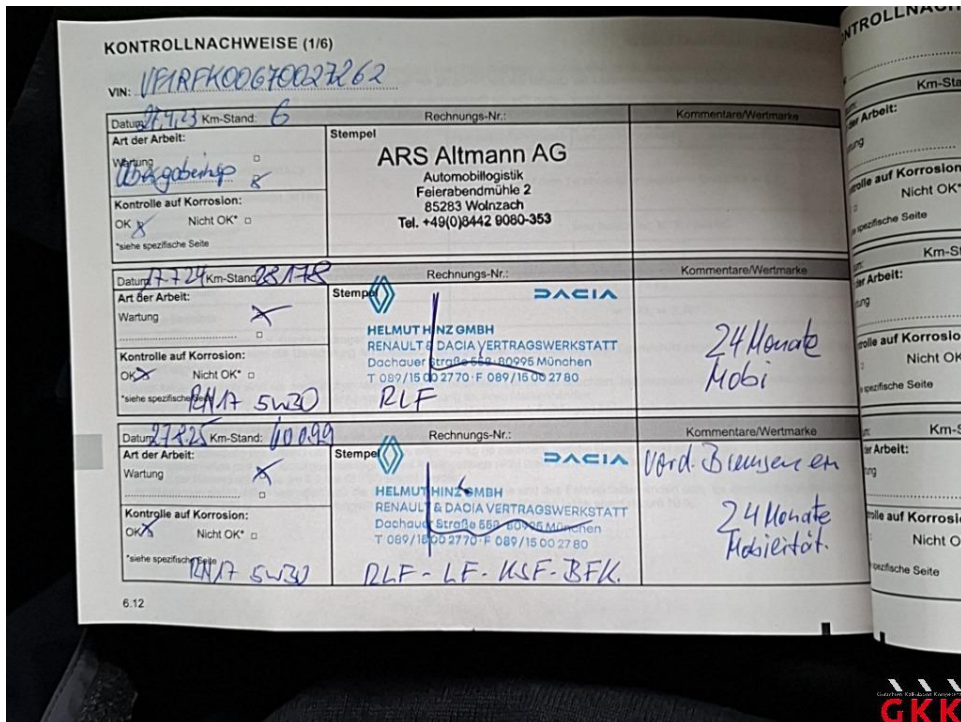 KONTROLLNACHWEISE (1/6)
VIN: VF1RFK00670027262
Datum 27.4.23 Km-Stand: 6 Rechnungs-Nr.: Kommentare/Wertmarke
Art der Arbeit:
Wartung
Übergabeinsp
Kontrolle auf Korrosion:
OK x Nicht OK*
*siehe spezifische Seite
Stempel
ARS Altmann AG
Automobillogistik
Feierabendmühle 2
85283 Wolnzach
Tel. +49(0)8442 9080-353
Datum 17.7.24 Km-Stand 28178 Rechnungs-Nr.: Kommentare/Wertmarke
Art der Arbeit:
Wartung x
Kontrolle auf Korrosion:
OK x Nicht OK*
*siehe spezifische
RN17 5W30
Stempel
DACIA
HELMUT HINZ GMBH
RENAULT & DACIA VERTRAGSWERKSTATT
Dachauer Straße 559 · 80995 München
T 089/15 00 2770 · F 089/15 00 27 80
RLF
24 Monate
Mobi
Datum 27.8.25 Km-Stand: 40099 Rechnungs-Nr.: Kommentare/Wertmarke
Art der Arbeit:
Wartung x
Kontrolle auf Korrosion:
OK x Nicht OK*
*siehe spezifische Seite
RN17 5W30
Stempel
DACIA
HELMUT HINZ GMBH
RENAULT & DACIA VERTRAGSWERKSTATT
Dachauer Straße 559 · 80995 München
T 089/15 00 2770 · F 089/15 00 27 80
RLF - LF - KSF - BFK.
Vord. Bremsen er
24 Monate
Mobilität.
6.12
Km-Sta
der Arbeit:
Kontrolle auf Korrosion
Nicht OK*
spezifische Seite
Km-St
der Arbeit:
Nicht OK
spezifische Seite
Km-S
der Arbeit:
Nicht O
spezifische Seite
GKK